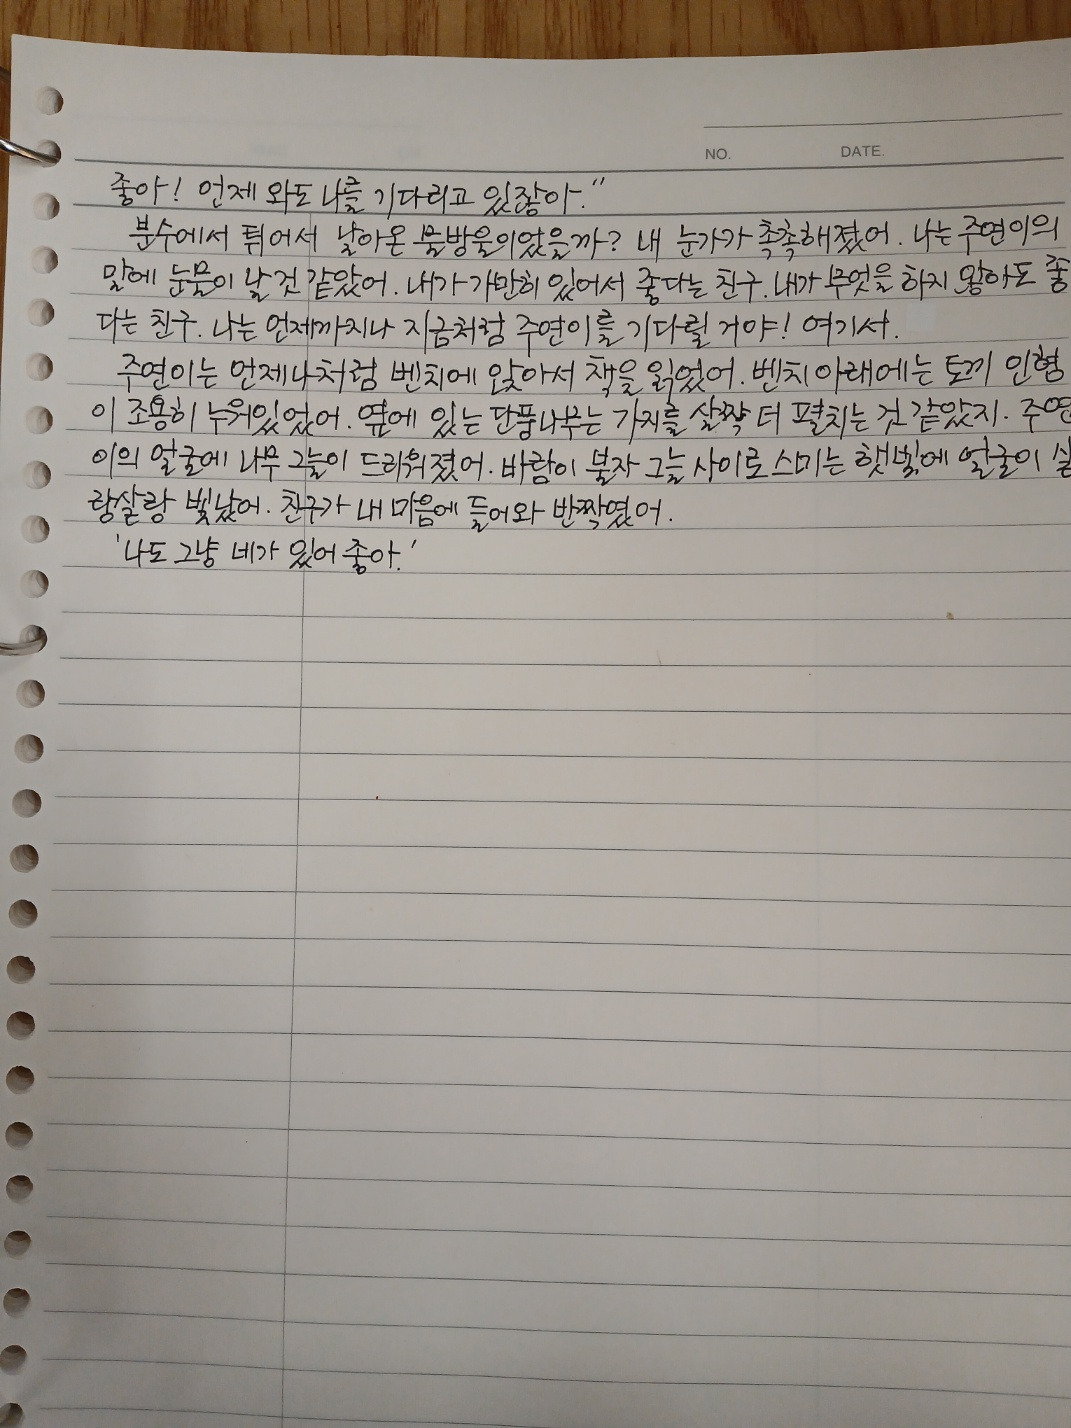 NO. DATE.
좋아! 언제 와도 나를 기다리고 있잖아."
분수에서 튀어서 날아온 물방울이었을까? 내 눈가가 촉촉해졌어. 나는 주연이의
말에 눈물이 날 것 같았어. 내가 가만히 있어서 좋다는 친구. 내가 무엇을 하지 않아도 좋
다는 친구. 나는 언제까지나 지금처럼 주연이를 기다릴 거야! 여기서.
주연이는 언제나처럼 벤치에 앉아서 책을 읽었어. 벤치 아래에는 토끼 인형
이 조용히 누워있었어. 옆에 있는 단풍나무는 가지를 살짝 더 펼치는 것 같았지. 주연
이의 얼굴에 나무 그늘이 드리워졌어. 바람이 불자 그늘 사이로 스미는 햇빛에 얼굴이 살
랑살랑 빛났어. 친구가 내 마음에 들어와 반짝였어.
'나도 그냥 네가 있어 좋아.'